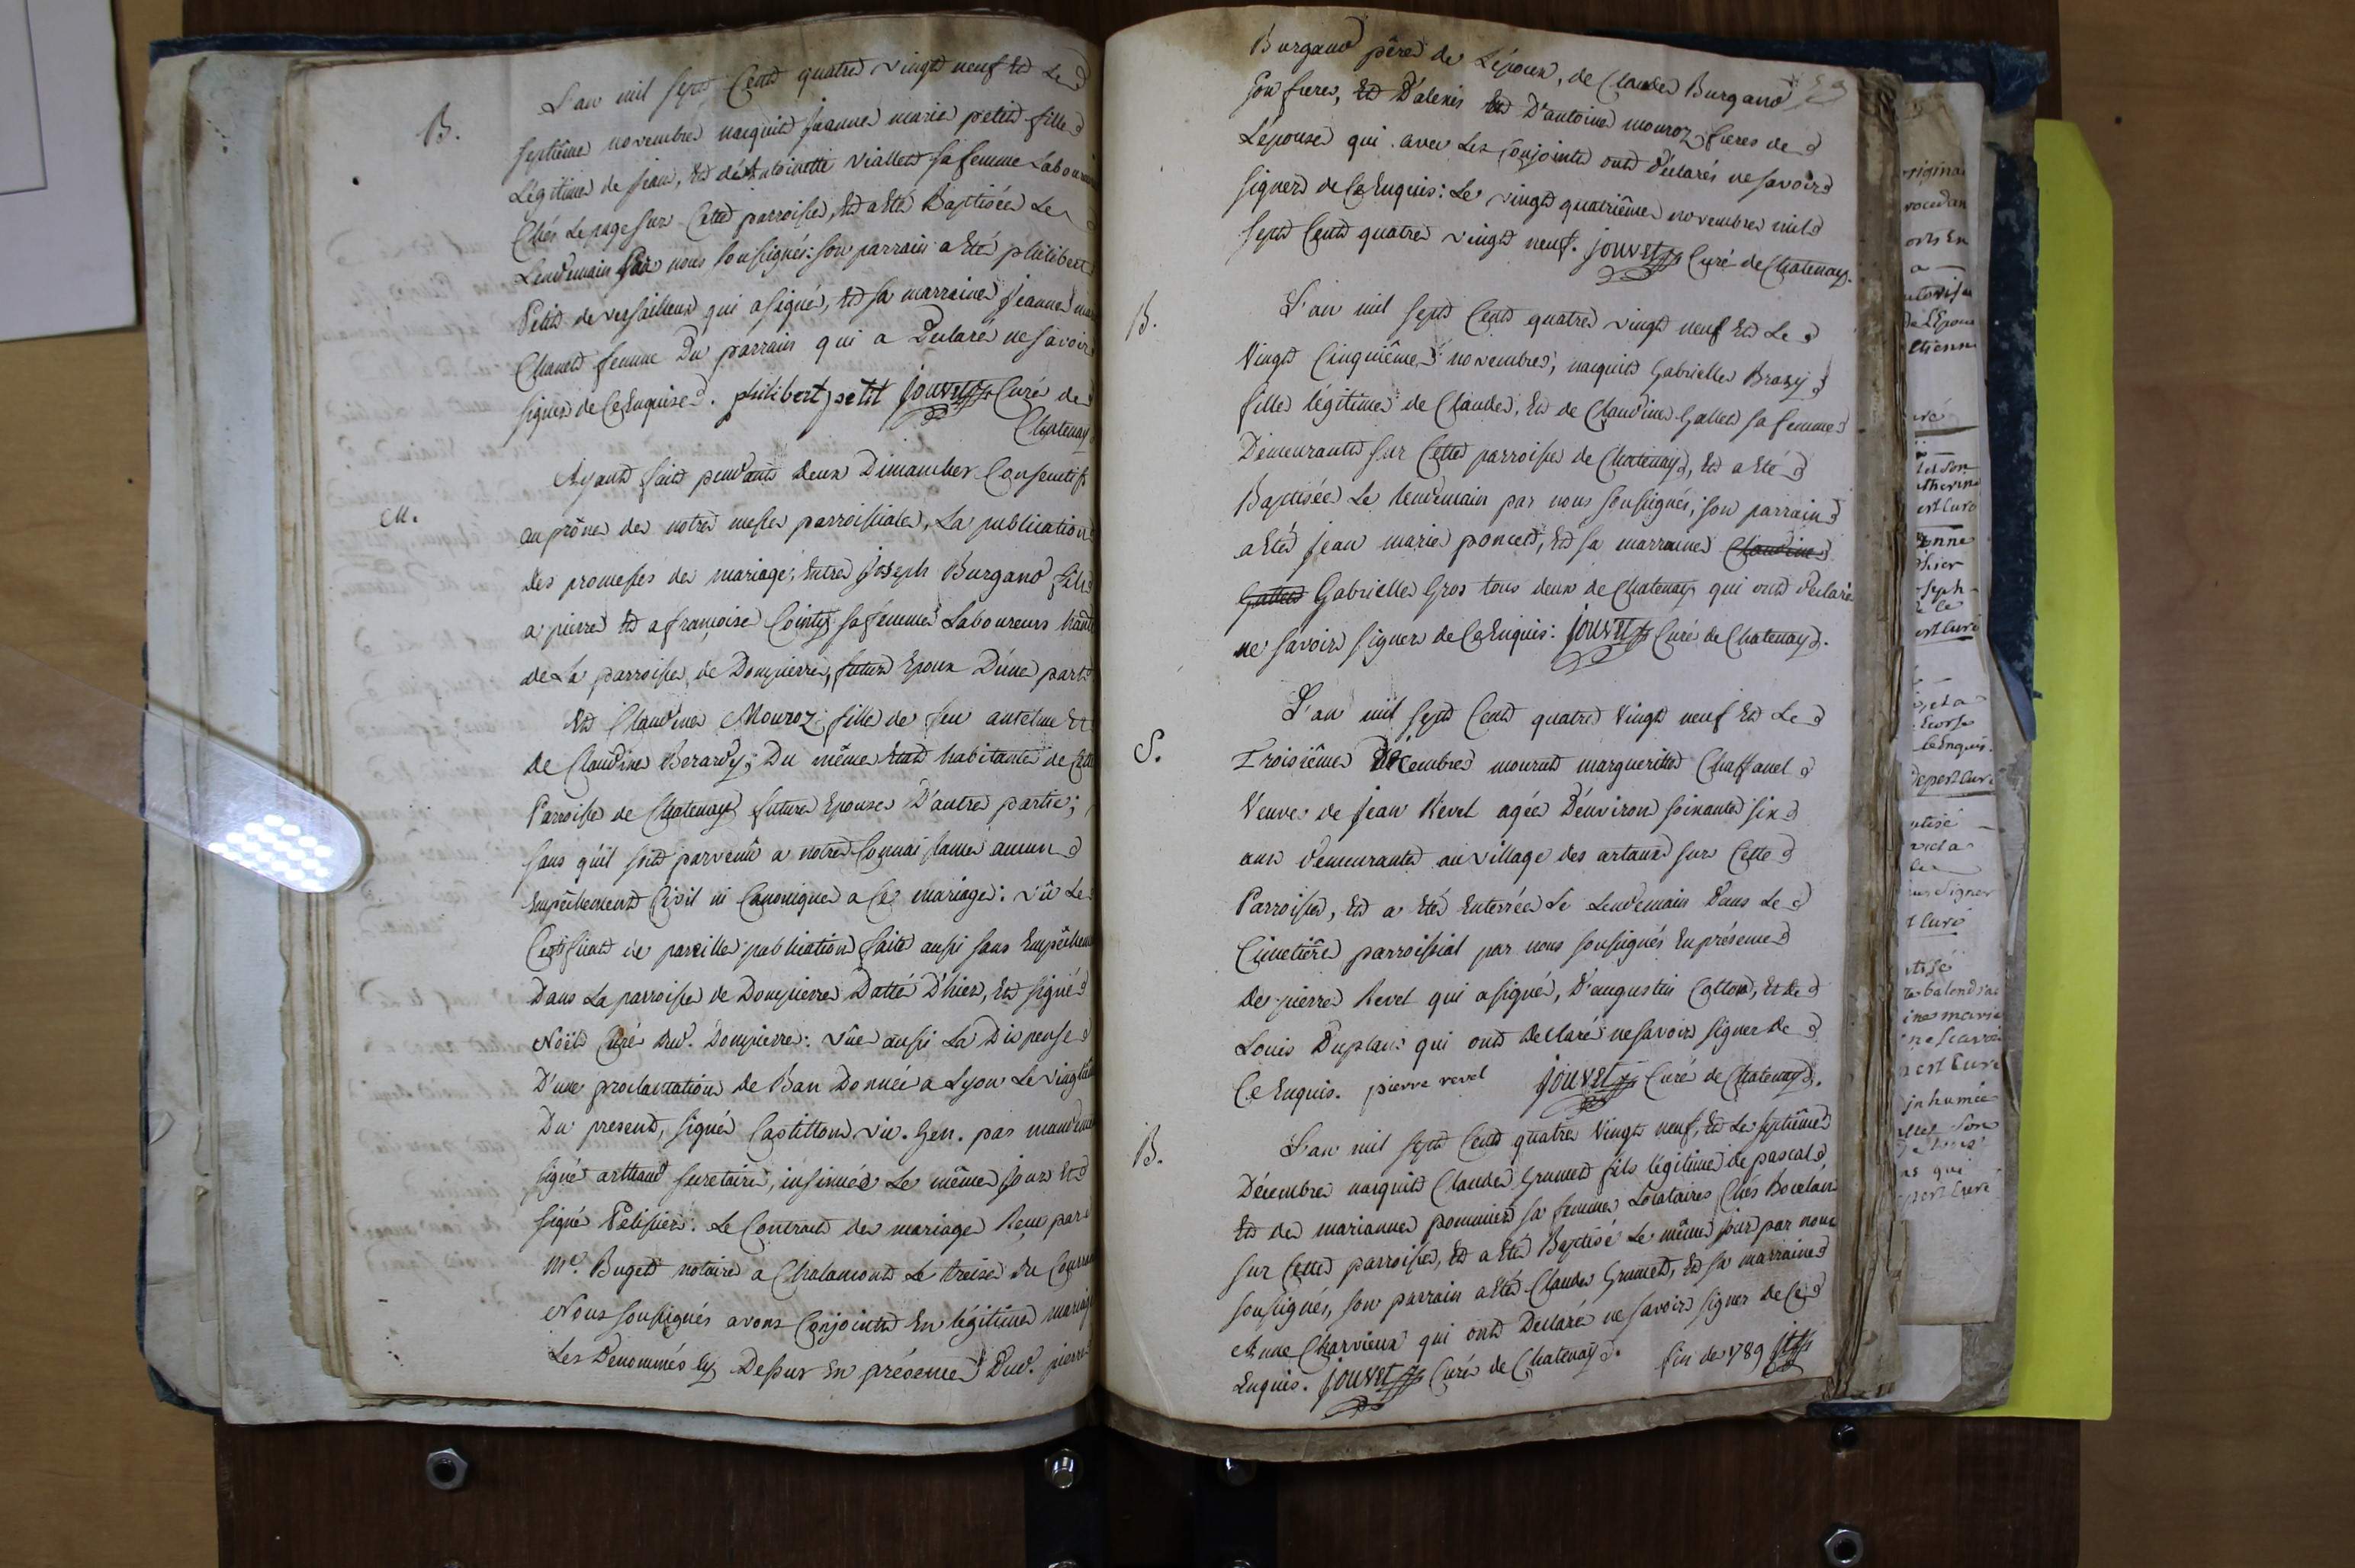 B.
L'an mil sept Cent quatre vingt neuf Et Le
septiême novembre naquit jeanne marie petit fille
Légitime de jean, Et de Antoinette Viallet sa femme Labour
Chés Lepage sur Cette parroisse, Et a Eté Baptisée Le
Lendemain par nous soussignés: son parrain a Eté philibert
Petit de versailleux qui a signé, Et sa marraine jeanne
Chanet femme Du parrain qui a Declaré ne savoir
signer de Ce Enquise. philibert petit jouvet Curé de
Chatenay
M.
Ayant fait pendant deux Dimanches Consecutifs
au prône de notre messe parroissiale, La publication
des promesses de mariage, Entre joseph Burgand fils
a pierre Et a françoise Cointy sa femme Laboureurs
de La parroisse de Dompierre, futur Epoux D'une part
Et Claudine Mouroz fille de feu antelme Et
de Claudine Berardy; Du même Etat habitante de Cette
Parroisse de Chatenay future Epouse D'autre partie;
sans qu'il soit parvenû a notre Connaissance aucun
Empêchement Civil ni Canonique a Ce mariage: vû Le
Certificat de pareille publication faite aussi sans Empêchement
Dans La parroisse de Dompierre Datté D'hier, Et signé
Noïld Curé dud. Dompierre: vûe aussi La Dispense
D'une proclamation de Ban Donnée a Lyon Le vingt
Du present, signé Castillon vic. Gen. par mandement
signé arthaud secretaire, insinuée Le même jour Et
signé Pelissier. Le Contract de mariage Reçu par
Me. Buget notaire a Chalamont Le treize Du Courant
Nous soussignés avons Conjoint En légitime mariage
Les Denommés Cy Dessus En présence Dud. pierre
Burgand père de L'époux, de Claude Burgand
son frere, Et D'alexis Et D'antoine mouroz freres de
L'epouse qui avec Les Conjoints ont déclarés ne savoir
signer de Ce Enquis: Le vingt quatriême novembre mil
sept Cent quatre vingt neuf. jouvet Curé de Chatenay.
B.
L'an mil sept Cent quatre vingt neuf Et Le
Vingt Cinquiême novembre, naquit Gabrielle Brazy
fille légitime de Claude, Et de Claudine Gallet sa femme
Demeurants sur Cette parroisse de Chatenay, Et a Eté
Baptisée Le lendemain par nous soussignés, son parrain
a Eté jean marie poncet, Et sa marraine Claudine
Gallet Gabrielle Gros tous deux de Chatenay qui ont declaré
ne savoir signer de Ce Enquis: jouvet Curé de Chatenay.
S.
L'an mil sept Cent quatre Vingt neuf Et Le
Troisiême Décembre mourut marguerite Chaffanel
Veuve de jean Revel agée D'environ soixante six
ans demeurante au village des artaux sur Cette
Parroisse, Et a Eté Enterrée Le Lendemain Dans Le
Cimetière parroissial par nous soussignés En présence
de pierre Revel qui a signé, D'augustin Cotton, Et de
Louis Duplan qui ont declaré ne savoir signer de
Ce Enquis. pierre revel jouvet Curé de Chatenay.
B.
L'an mil sept Cent quatre Vingt neuf, Et Le septiême
Décembre naquit Claude Grumet fils légitime de pascal
Et de marianne pommier sa femme Locataires Chés
sur Cette parroisse, Et a Eté Baptisé Le même jour par nous
soussignés, son parrain a Eté Claude Grumet, Et sa marraine
Anne Charvieux qui ont Declaré ne savoir signer de Ce
Enquis. jouvet Curé de Chatenay. fin de 1789